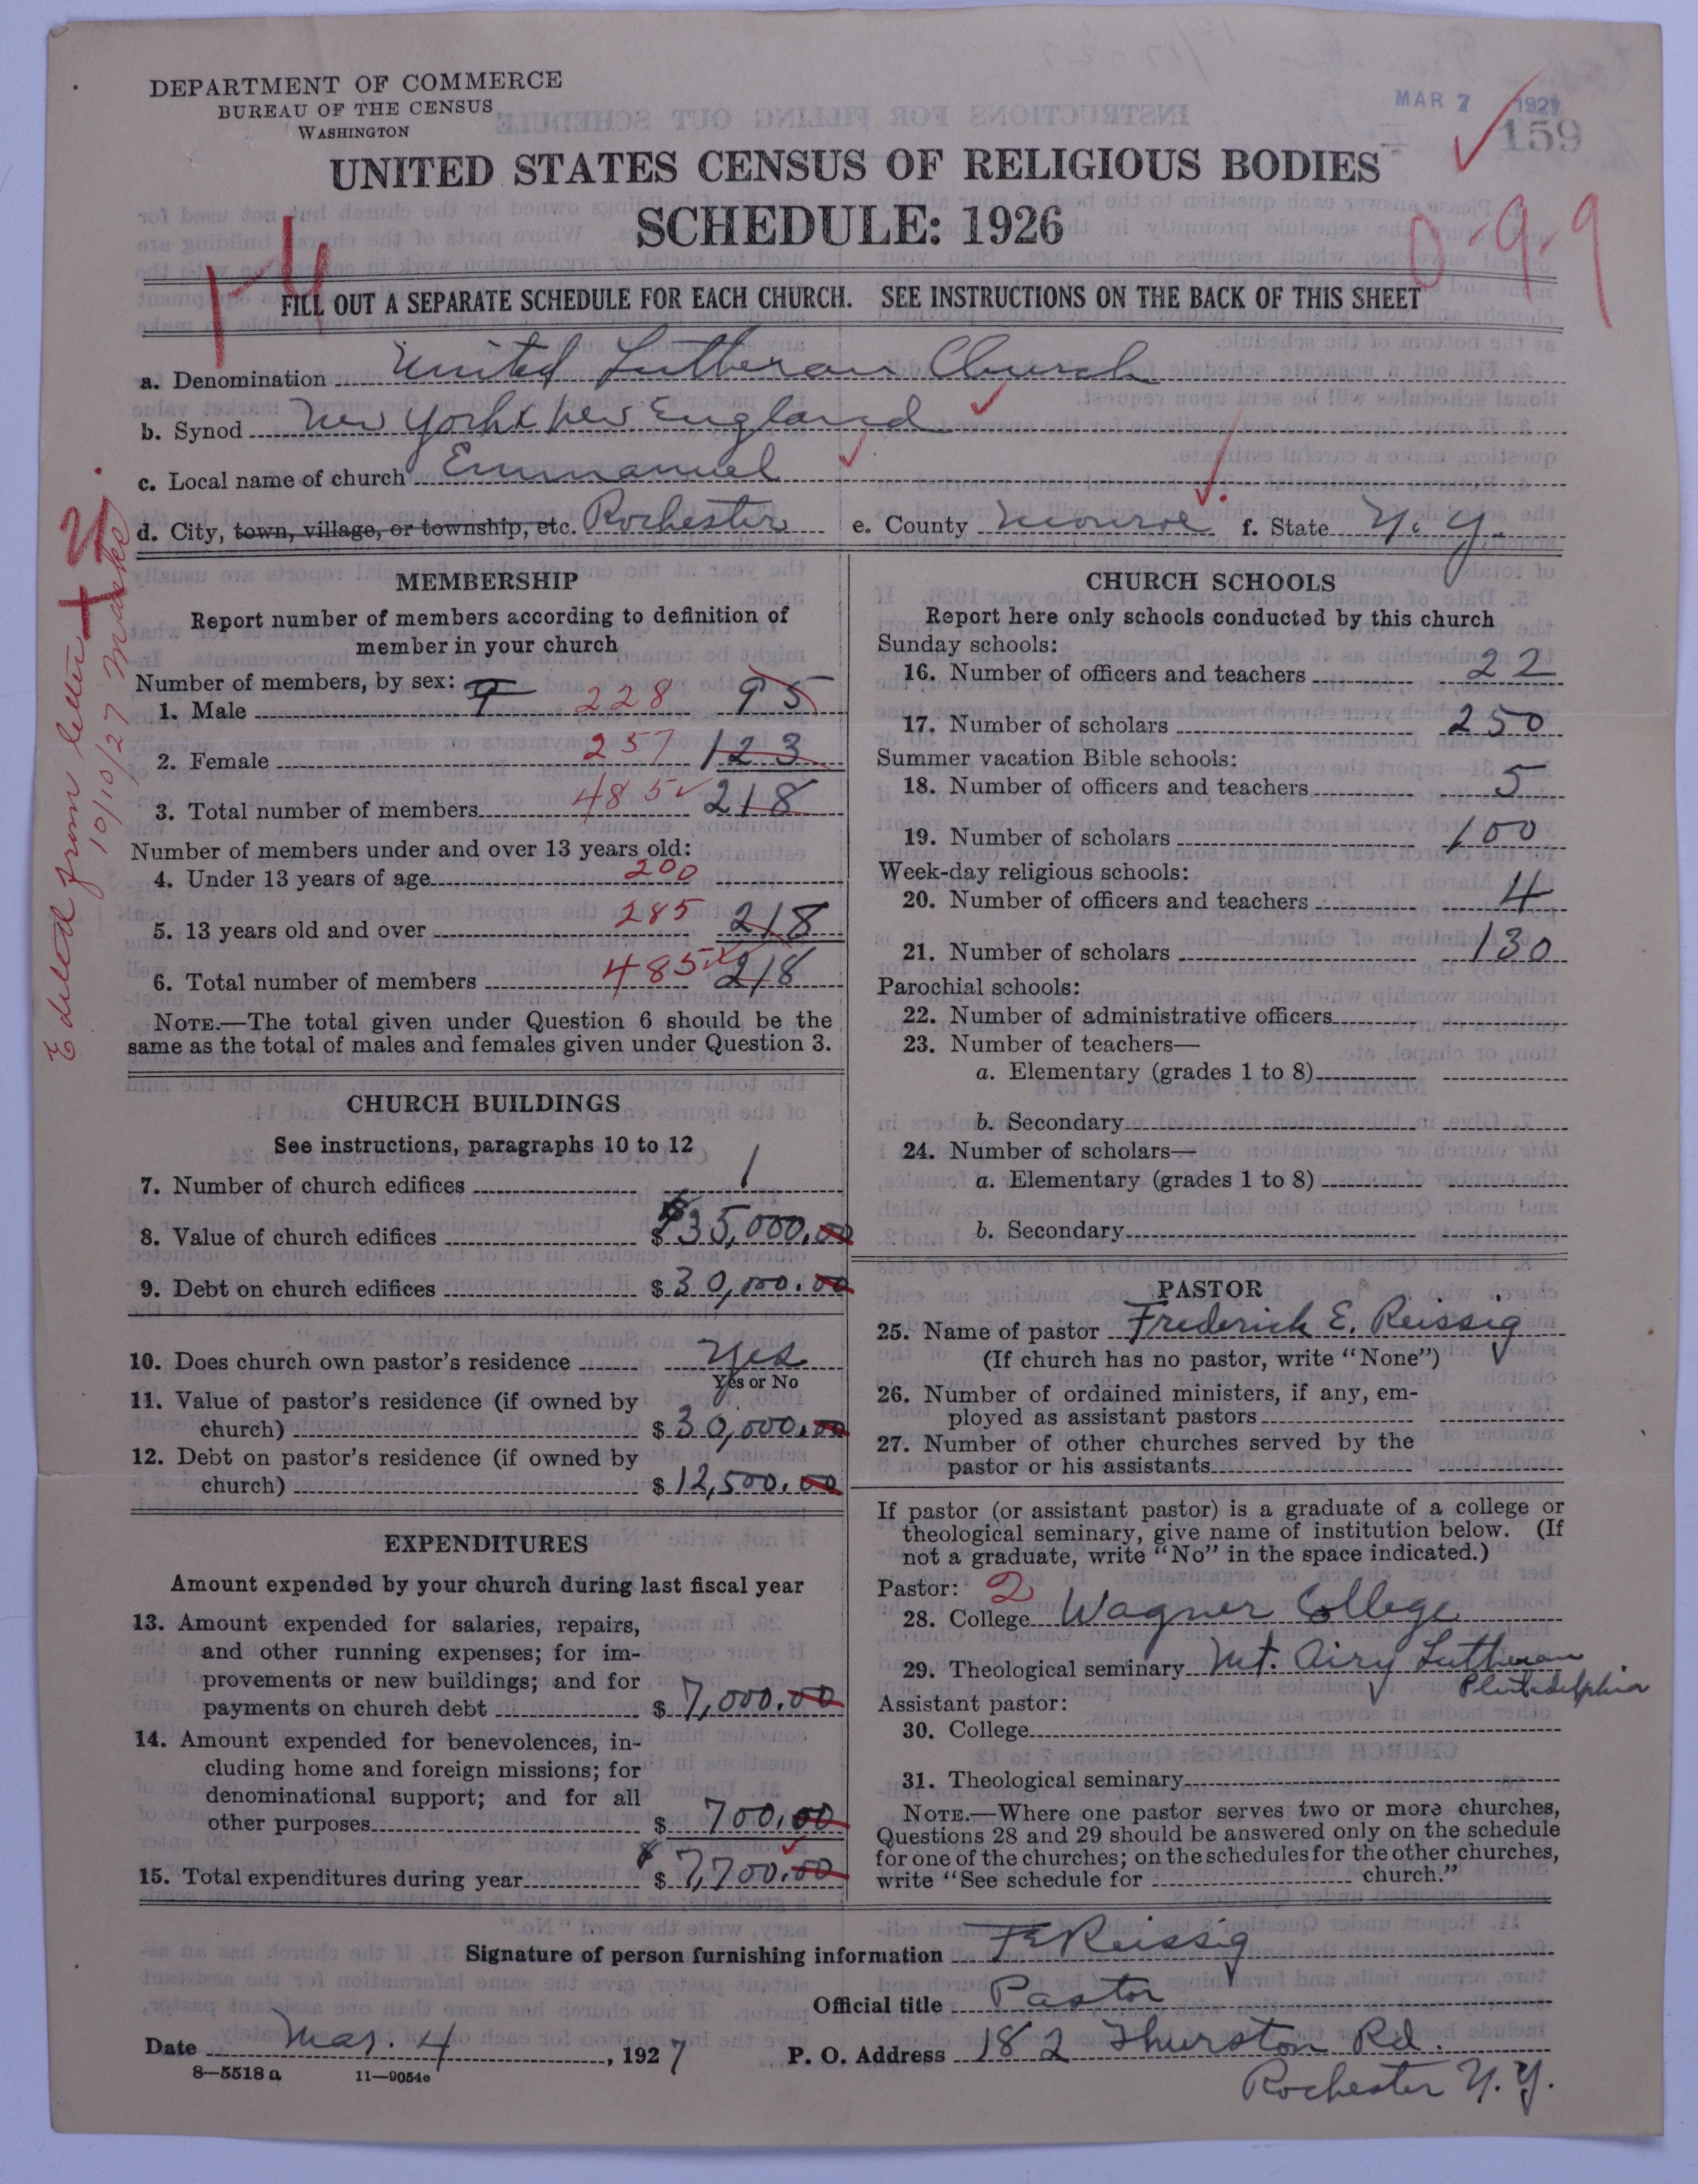 DEPARTMENT OF COMMERCE
BUREAU OF THE CENSUS
WASHINGTON
MAR 7 1927
159
UNITED STATES CENSUS OF RELIGIOUS BODIES
SCHEDULE: 1926
1-4
0-9-9
FILL OUT A SEPARATE SCHEDULE FOR EACH CHURCH. SEE INSTRUCTIONS ON THE BACK OF THIS SHEET
a. Denomination United Lutheran Church
b. Synod New York & New England
c. Local name of church Emmanuel
d. City, town, village, or township, etc. Rochester e. County Monroe f. State N. Y.
Edited from letter 10/10/27
MEMBERSHIP
Report number of members according to definition of
member in your church
Number of members, by sex:
1. Male 9 228 95
2. Female 257 123
3. Total number of members 485 218
Number of members under and over 13 years old:
4. Under 13 years of age 200
5. 13 years old and over 285 218
6. Total number of members 485 218
NOTE.—The total given under Question 6 should be the
same as the total of males and females given under Question 3.
CHURCH BUILDINGS
See instructions, paragraphs 10 to 12
7. Number of church edifices 1
8. Value of church edifices $ 35,000.00
9. Debt on church edifices $ 30,000.00
10. Does church own pastor's residence Yes
Yes or No
11. Value of pastor's residence (if owned by
church) $ 30,000.00
12. Debt on pastor's residence (if owned by
church) $ 12,500.00
EXPENDITURES
Amount expended by your church during last fiscal year
13. Amount expended for salaries, repairs,
and other running expenses; for im-
provements or new buildings; and for
payments on church debt $ 7,000.00
14. Amount expended for benevolences, in-
cluding home and foreign missions; for
denominational support; and for all
other purposes $ 700.00
15. Total expenditures during year $ 7,700.00
CHURCH SCHOOLS
Report here only schools conducted by this church
Sunday schools:
16. Number of officers and teachers 22
17. Number of scholars 250
Summer vacation Bible schools:
18. Number of officers and teachers 5
19. Number of scholars 100
Week-day religious schools:
20. Number of officers and teachers 4
21. Number of scholars 130
Parochial schools:
22. Number of administrative officers
23. Number of teachers—
a. Elementary (grades 1 to 8)
b. Secondary
24. Number of scholars—
a. Elementary (grades 1 to 8)
b. Secondary
PASTOR
25. Name of pastor Frederick E. Reissig
(If church has no pastor, write "None")
26. Number of ordained ministers, if any, em-
ployed as assistant pastors
27. Number of other churches served by the
pastor or his assistants
If pastor (or assistant pastor) is a graduate of a college or
theological seminary, give name of institution below. (If
not a graduate, write "No" in the space indicated.)
Pastor: 2
28. College Wagner College
29. Theological seminary Mt. Airy Lutheran
Philadelphia
Assistant pastor:
30. College
31. Theological seminary
NOTE.—Where one pastor serves two or more churches,
Questions 28 and 29 should be answered only on the schedule
for one of the churches; on the schedules for the other churches,
write "See schedule for church."
Signature of person furnishing information F E Reissig
Official title Pastor
Date Mar. 4, 1927 P. O. Address 182 Thurston Rd.
8—5518 a 11—9054e
Rochester N. Y.